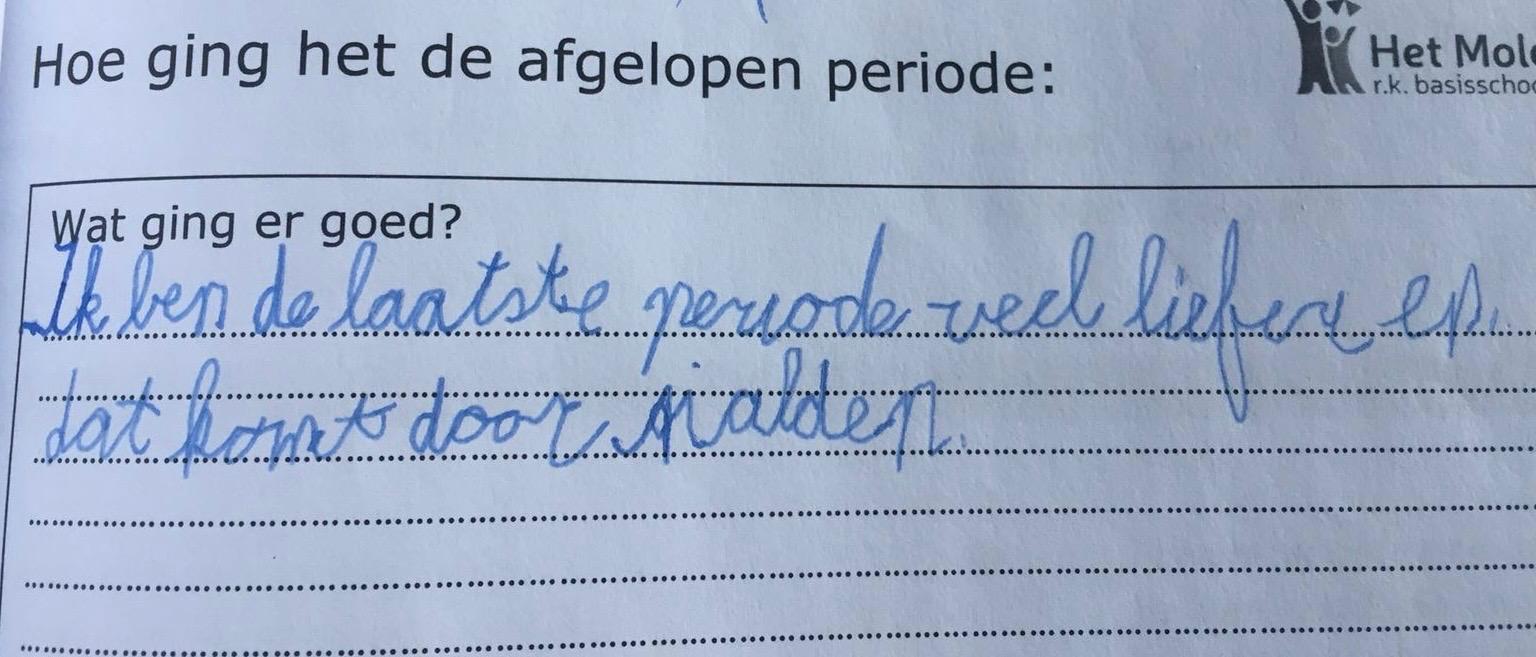 Hoe ging het de afgelopen periode:
Het Mole
r.k. basisschoo
Wat ging er goed?
Ik ben de laatste periode veel liefere en
dat komt door